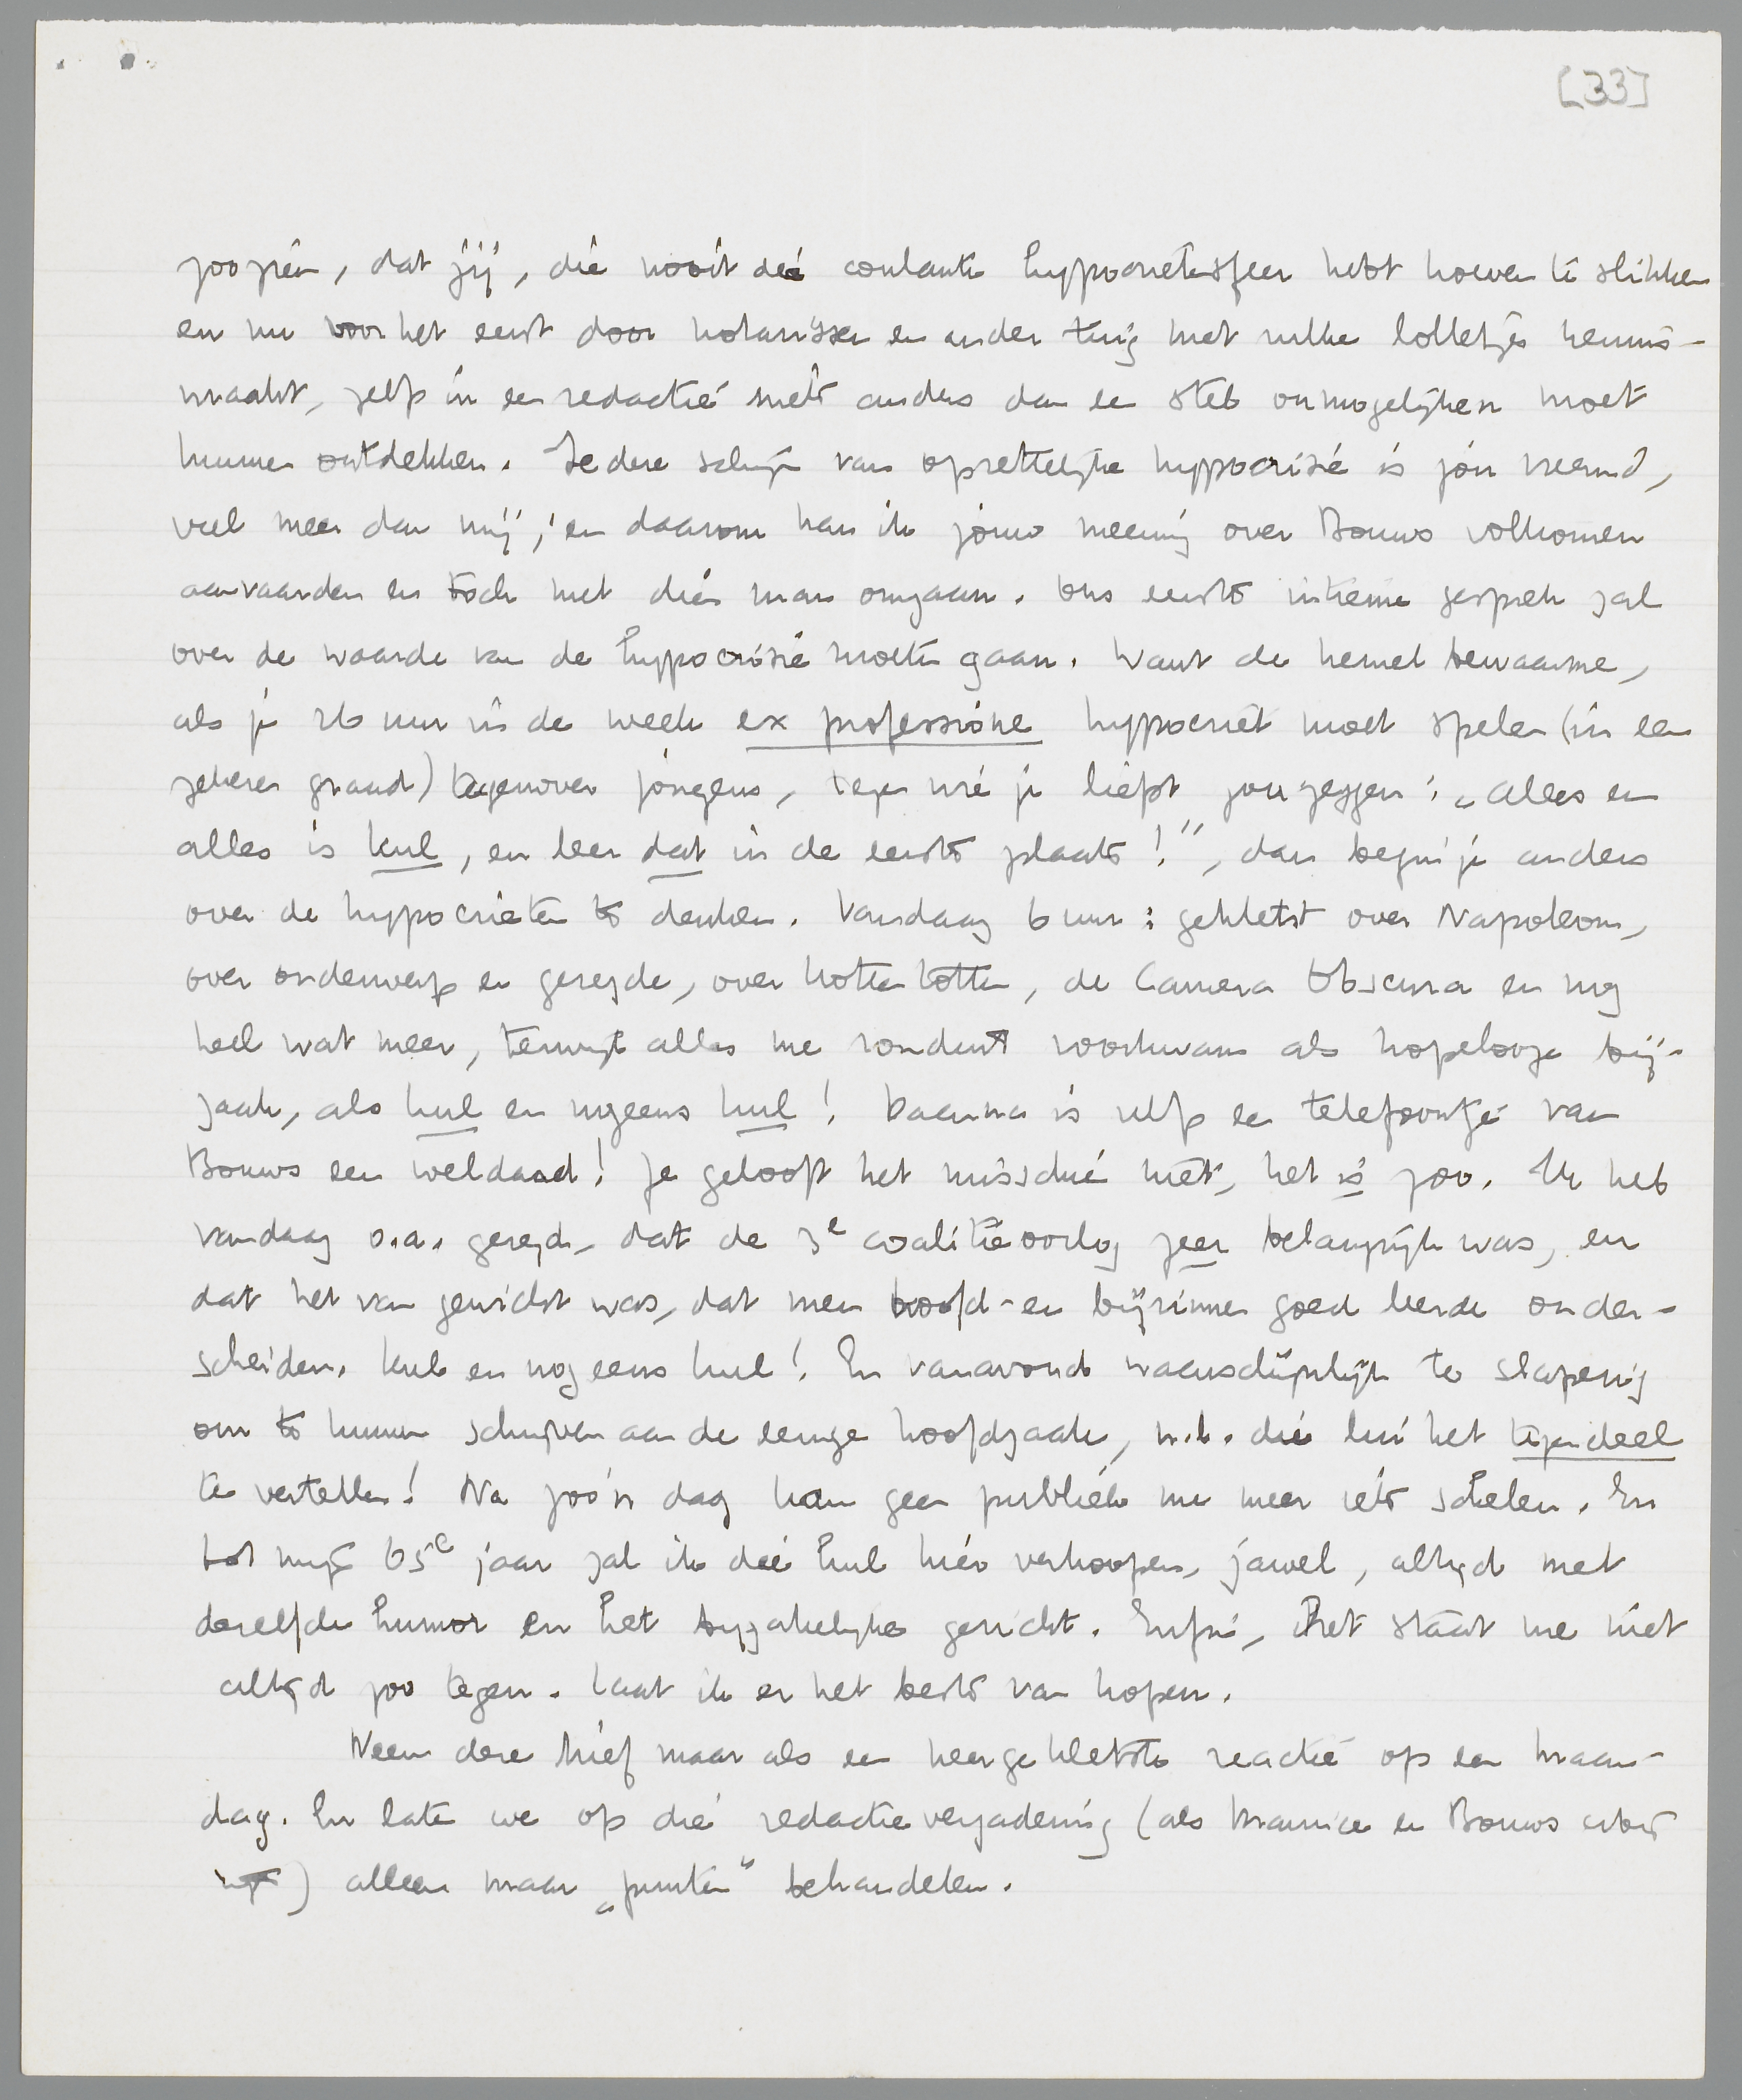 [33]
zoo zien, dat jij, die nooit die coulante hypocrietensfeer hebt hoeven te slikken
en nu voor het eerst door notarissen en ander tuig met zulke lolletjes kennis-
maakt, zelfs in een redactie niets anders dan een stel onmogelijken moet
kunnen ontdekken. Iedere schijn van opzettelijke hypocrisie is jou vreemd,
veel meer dan mij; en daarom kan ik jouw meening over Bouws volkomen
aanvaarden en toch met dien man omgaan. Ons eerste intieme gesprek zal
over de waarde van de hypocrisie moeten gaan. Want de hemel bewaarme,
als je 26 uur in de week ex professione hypocriet moet spelen (in een
zekeren graad) tegenover jongens, tegen wie je liefst zou zeggen: „Alles en
alles is kul, en leer dat in de eerste plaats!", dan begin je anders
over de hypocrieten te denken. Vandaag 6 uur: gekletst over Napoleon,
over onderwerp en gezegde, over hottentotten, de Camera Obscura en nog
heel wat meer, terwijl alles me ronduit voorkwam als hopelooze bij-
zaak, als kul en nogeens kul! Daarna is zelfs een telefoontje van
Bouws een weldaad! Je gelooft het misschien niet, het is zoo. Ik heb
vandaag o.a. gezegd, dat de 3e coalitieoorlog zeer belangrijk was, en
dat het van gewicht was, dat men hoofd- en bijzinnen goed leerde onder-
scheiden. Kul en nog eens kul! En vanavond waarschijnlijk te slaperig
om te kunnen schrijven aan de eenige hoofdzaak, n.l. die lui het tegendeel
te vertellen! Na zoo'n dag kan geen publiek me meer iets schelen. En
tot mijn 65e jaar zal ik die kul hier verkoopen, jawel, altijd met
dezelfde humor en het bijzakelijke gezicht. Enfin, het staat me niet
altijd zoo tegen. Laat ik er het beste van hopen.
Neem deze brief maar als een neergekletste reactie op een maan-
dag. En laten we op die redactievergadering (als Maurice en Bouws erbij
zijn) alleen maar „punten" behandelen.